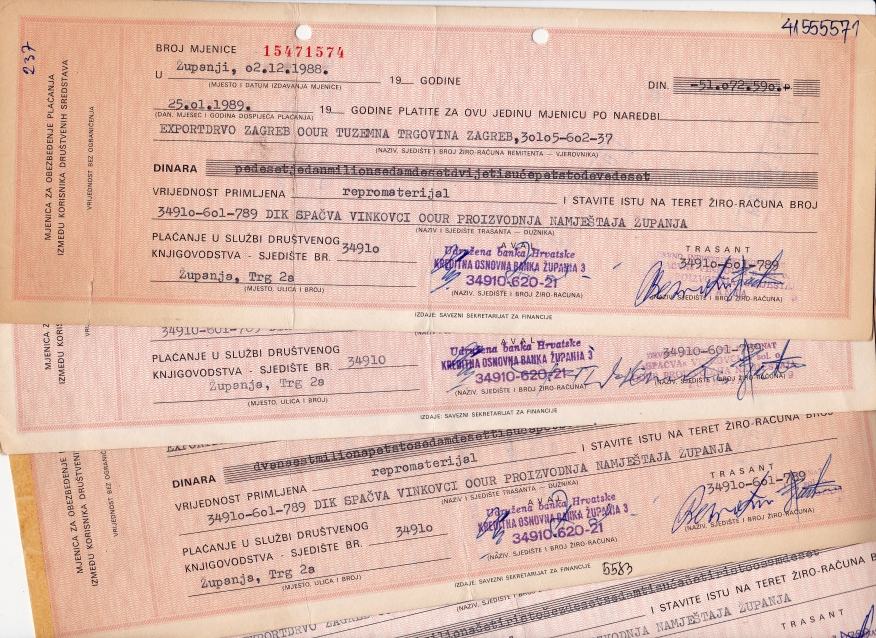 41555571
237
MJENICA ZA OBEZBEĐENJE PLAĆANJA
IZMEĐU KORISNIKA DRUŠTVENIH SREDSTAVA
VRIJEDNOST BEZ OGRANIČENJA
BROJ MJENICE 15471574
U Županji, o2.12.1988. 19 GODINE DIN. -51.o72.59o.-
(MJESTO I DATUM IZDAVANJA MJENICE)
25.o1.1989. 19 GODINE PLATITE ZA OVU JEDINU MJENICU PO NAREDBI
(DAN, MJESEC I GODINA DOSPIJEĆA PLAĆANJA)
EXPORTDRVO ZAGREB OOUR TUZEMNA TRGOVINA ZAGREB,3o1o5-6o2-37
(NAZIV, SJEDIŠTE I BROJ ŽIRO-RAČUNA REMITENTA — VJEROVNIKA)
DINARA pedesetjedanmilionsedamdesetdvijetisućepetstodevedeset
VRIJEDNOST PRIMLJENA repromaterijal I STAVITE ISTU NA TERET ŽIRO-RAČUNA BROJ
3491o-6o1-789 DIK SPAČVA VINKOVCI OOUR PROIZVODNJA NAMJEŠTAJA ŽUPANJA
(NAZIV I SJEDIŠTE TRASANTA — DUŽNIKA)
PLAĆANJE U SLUŽBI DRUŠTVENOG
KNJIGOVODSTVA - SJEDIŠTE BR. 3491o
Županja, Trg 2a
(MJESTO, ULICA I BROJ)
AVAL
Udružena banka Hrvatske
KREDITNA OSNOVNA BANKA ŽUPANJA 3
34910-620-21
(NAZIV, SJEDIŠTE I BROJ ŽIRO-RAČUNA)
TRASANT
3491o-6o1-789
(NAZIV, SJEDIŠTE I BROJ ŽIRO-RAČUNA)
IZDAJE: SAVEZNI SEKRETARIJAT ZA FINANCIJE
MJENICA
IZMEĐU KORIS
34910-601-789
PLAĆANJE U SLUŽBI DRUŠTVENOG
KNJIGOVODSTVA - SJEDIŠTE BR. 34910
Županja, Trg 2a
(MJESTO, ULICA I BROJ)
AVAL
Udružena banka Hrvatske
KREDITNA OSNOVNA BANKA ŽUPANJA 3
34910-620-21
(NAZIV, SJEDIŠTE I BROJ ŽIRO-RAČUNA)
34910-601-789
IZDAJE: SAVEZNI SEKRETARIJAT ZA FINANCIJE
MJENICA ZA OBEZBEĐENJE
IZMEĐU KORISNIKA DRUŠTVEN
VRIJEDNOST BEZ OGRANIČ
DINARA dvensestmilionapetstosedamdesettisuće
VRIJEDNOST PRIMLJENA repromaterijal I STAVITE ISTU NA TERET ŽIRO-RAČUNA BROJ
3491o-6o1-789 DIK SPAČVA VINKOVCI OOUR PROIZVODNJA NAMJEŠTAJA ŽUPANJA
(NAZIV I SJEDIŠTE TRASANTA — DUŽNIKA)
PLAĆANJE U SLUŽBI DRUŠTVENOG
KNJIGOVODSTVA - SJEDIŠTE BR. 3491o
Županja, Trg 2a
(MJESTO, ULICA I BROJ)
AVAL
Udružena banka Hrvatske
KREDITNA OSNOVNA BANKA ŽUPANJA 3
34910-620-21
(NAZIV, SJEDIŠTE I BROJ ŽIRO-RAČUNA)
TRASANT
3491o-6o1-789
(NAZIV, SJEDIŠTE I BROJ ŽIRO-RAČUNA)
IZDAJE: SAVEZNI SEKRETARIJAT ZA FINANCIJE 5583
EXPORTDRVO ZAGREB
I STAVITE ISTU NA TERET ŽIRO-RAČUNA B
NAMJEŠTAJA ŽUPANJA
TRASANT